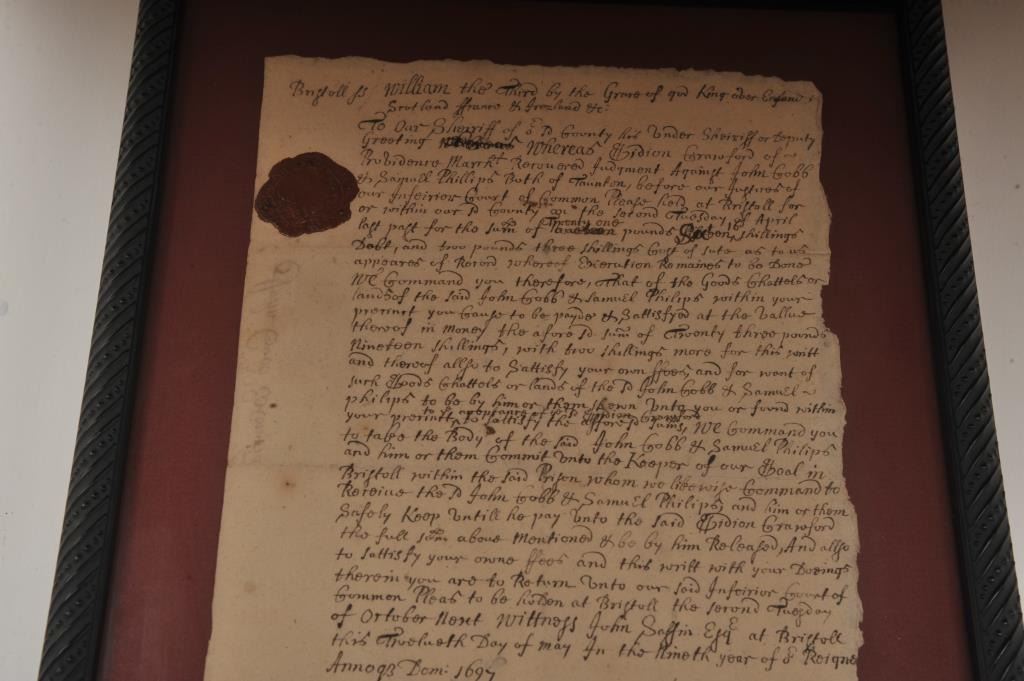 Bristoll ss William the Third by the Grace of god King over England &
Scotland ffrance & Ireland &c:
To Our Sherriff of ye sd County his Under Sherriff or Deputy
Greeting Whereas Gidion Crawford of
Providence Marcht Recovered Judgment Against John Cobb
& Samull Phillips Both of Taunton, before our Justices of
our Inferior Court of Common Please held at Bristoll for
or within our sd County on the second Tuesday of April
last past for the sum of Twenty one pounds 16 shillings
Debt, and two pounds three shillings Cost of sute as to us
appeares of Record whereof Execution Remaines to be Done
We Command you therefore, That of the Goods Chattels or
lands of the said John Cobb & Samuel Philips within your
precinct you Cause to be payde & Sattisfyed at the vallue
thereof in Money the afore sd sum of Twenty three pounds
Nineteen shillings, with two shillings more for this writt
and thereof allso to Sattisfy your own ffees, and for want of
such Goods Chattels or lands of the sd John Cobb & Samuel
philips to be by him or them shewn unto you or found within
to acceptance of ye sd Gidion Crawford
your precinct, to sattisfy the afforesd sums, We Command you
to take the Body of the said John Cobb & Samuel Philips
and him or them Commit unto the Keeper of our Goal in
Bristoll within the said Prison whom we likewise Command to
Receive the sd John Cobb & Samuel Philips, and him or them
Safely Keep untill he pay unto the said Gidion Crawford
the full sum above Mentioned & be by him Released, And allso
to sattisfy your owne ffees and this writt with your Doeings
therein you are to Return unto our said Inferior Court of
Common Pleas to be holden at Bristoll the second Tuesday
of October Next Wittness John Saffin Esqr at Bristoll
this Twelveth Day of may In the Nineth year of or Reigne
Annoqz Dom: 1697